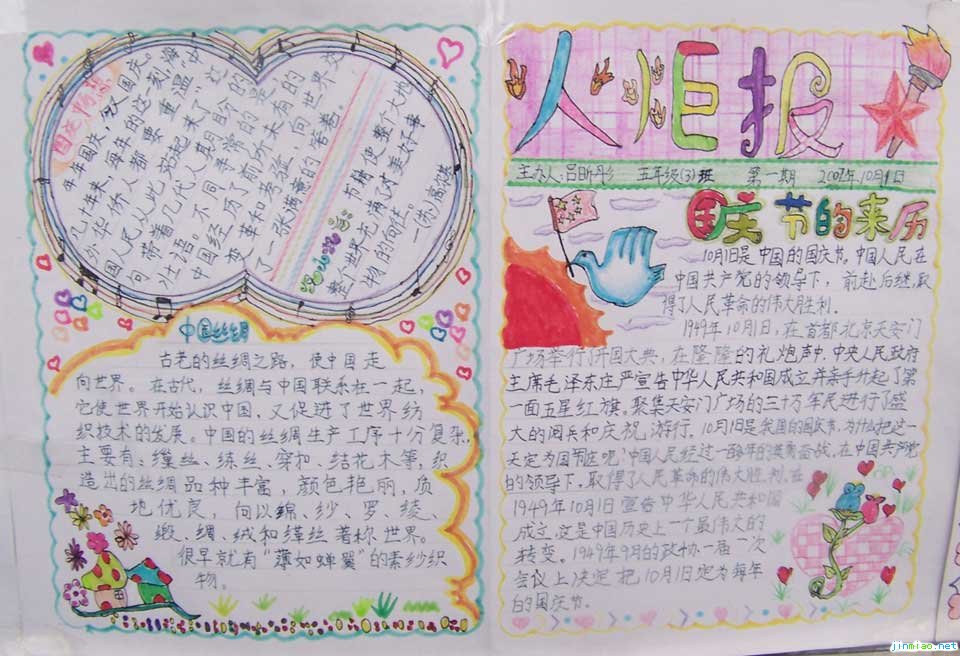 国庆随想
年年国庆，
几十年来，每年的这一刻，海
外华侨，都要重温"
国人民从此站起来了"这
句带着几代人期盼的
壮语。不同寻常的是
中国经历了前所未有的
变革和考验，向世界交
了一张满意的答卷。
书籍使整个大地
整个世界充满了对美好事
物的向往。
—(侨)高棋
中国丝绸
古老的丝绸之路，使中国走
向世界。在古代，丝绸与中国联系在一起，
它使世界开始认识中国，又促进了世界纺
织技术的发展。中国的丝绸生产工序十分复杂，
主要有：缫丝、练丝、穿扣、结花木等，织
造出的丝绸品种丰富，颜色艳丽，质
地优良，向以锦、纱、罗、绫、
缎、绸、绒和缂丝著称世界。
很早就有"薄如蝉翼"的素纱织
物。
火炬报
主办人：吕昕彤 五年级(3)班 第一期 2007年.10月1日
国庆节的来历
10月1日是中国的国庆节。中国人民在
中国共产党的领导下，前赴后继，取
得了人民革命的伟大胜利.
1949年10月1日，在首都北京天安门
广场举行了开国大典，在隆隆的礼炮声中，中央人民政府
主席毛泽东庄严宣告中华人民共和国成立并亲手升起了第
一面五星红旗。聚集天安门广场的三十万军民进行了盛
大的阅兵和庆祝游行。10月1日是我国的国庆节，为什么把这一
天定为国节庆呢？中国人民经过一百多年的英勇奋战，在中国共产党
的领导下，取得了人民革命的伟大胜利，在
1949年10月1日宣告中华人民共和国
成立，这是中国历史上一个最伟大的
转变。1949年9月的政协一届一次
会议上决定把10月1日定为每年
的国庆节。
jinmiao.net